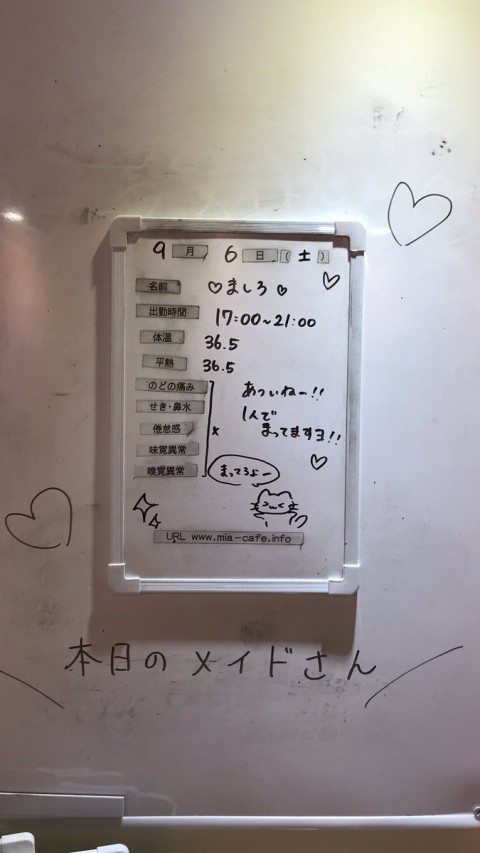 9月 6日(土)
名前 ♡ましろ♡
出勤時間 17:00~21:00
体温 36.5
平熱 36.5
のどの痛み
せき・鼻水
倦怠感
味覚異常
嗅覚異常
×
あついねー!!
1人で
まってますヨ!!
まってるよー
URL www.mia-cafe.info
本日のメイドさん